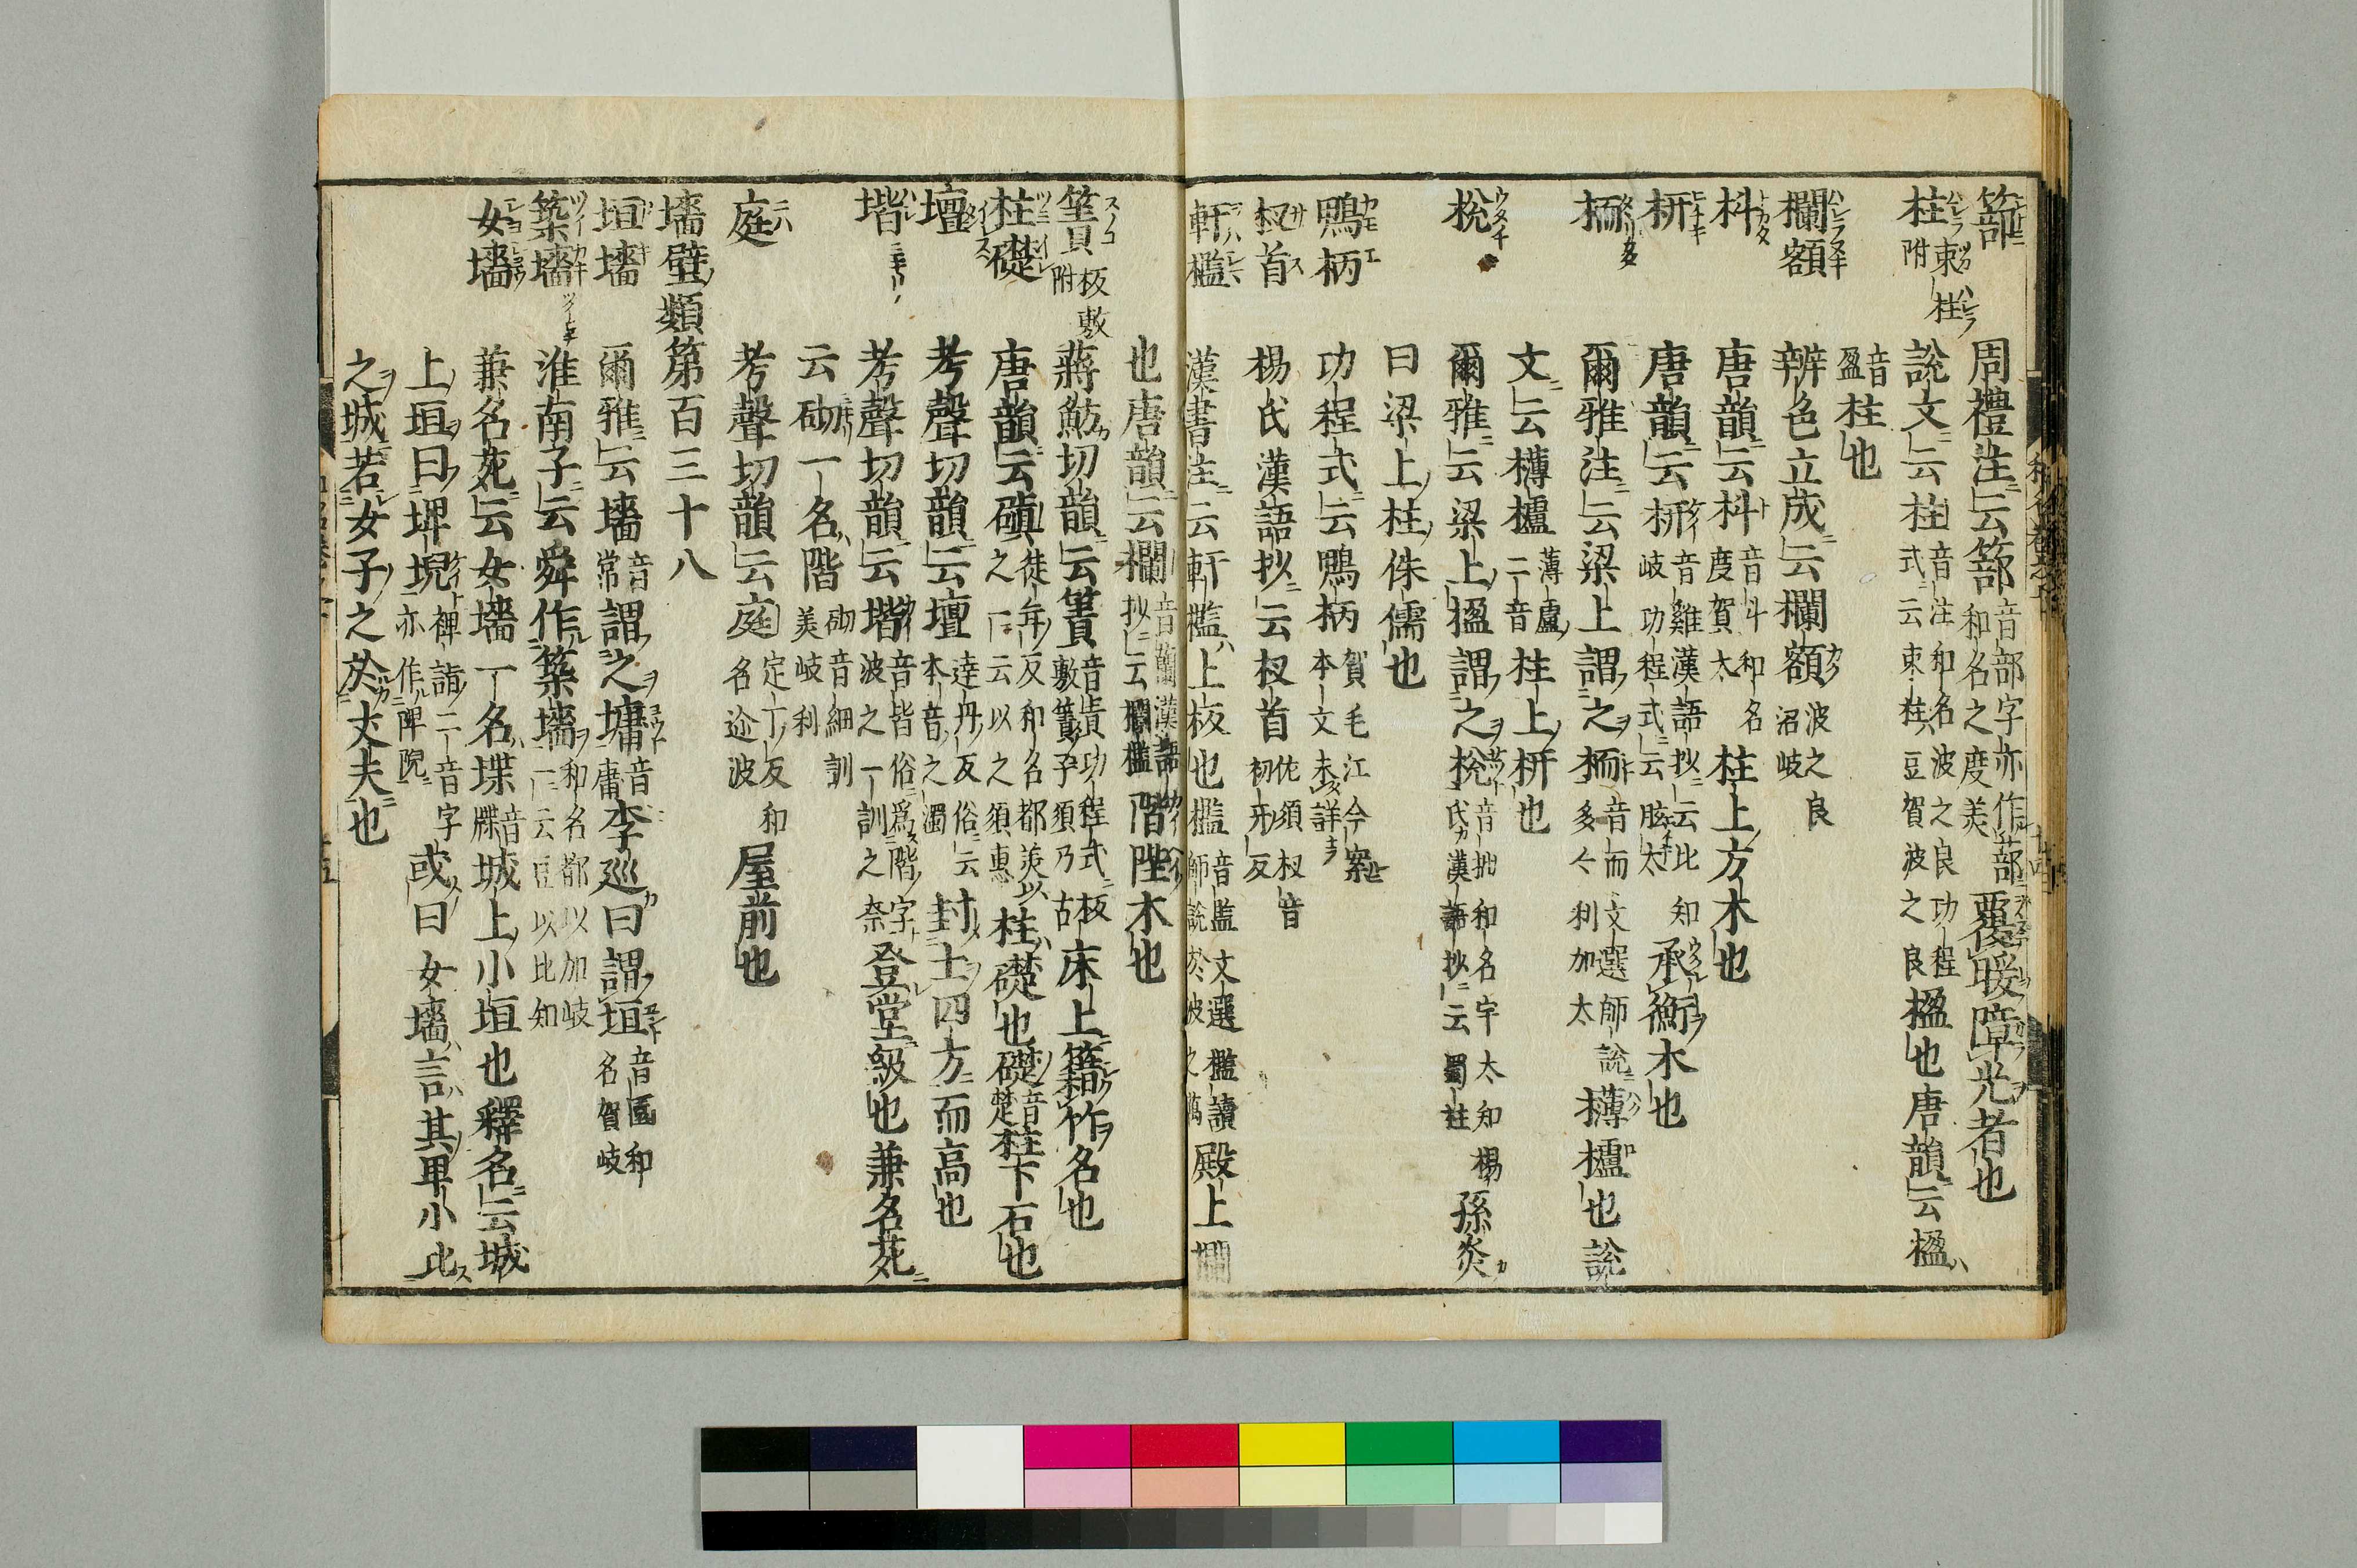 蔀 周禮注云蔀音部字亦作䔒和名之度美覆暖障光者也
柱束柱附 說文云柱音注和名波之良功程式云束柱豆賀波之良楹也唐韻云楹
音盈柱也
欄額 辨色立成云欄額波之良沼岐
枓 唐韻云枓音斗和名度賀太柱上方木也
枅 唐韻云枅音雞漢語抄云比知岐功程式云肱太承衡木也
栭 爾雅注云梁上謂之栭音而文選師說多々利加太欂櫨也說
文云欂櫨薄盧二音柱上枅也
梲 爾雅云梁上楹謂之梲音拙和名宇太知楊氏漢語抄云蜀柱孫炎
曰梁上柱侏儒也
鴨柄 功程式云鴨柄賀毛江今案本文未詳
杈首 楊氏漢語抄云杈首佐須杈音初牙反
軒檻 漢書注云軒檻上板也檻音監文選檻讀師說於波之萬殿上欄
也唐韻云欄音蘭漢語抄云欄檻階陛木也
簀板敷附 蔣魴切韻云簀音責功程式板敷簀子須乃古床上籍竹名也
柱礎 唐韻云磌徒年反和名都美以之一云以之須惠柱礎也礎音楚柱下石也
壇 考聲切韻云壇達丹反俗云本音之濁封土四方而高也
堦 考聲切韻云堦音皆俗爲階字波之一訓之奈登堂級也兼名苑
云砌一名階砌音細訓美岐利
庭 考聲切韻云庭定丁反和名迩波屋前也
墻壁類第百三十八
垣墻 爾雅云墻音常謂之墉音庸李巡曰謂垣音園和名賀岐
築墻 淮南子云舜作築墻和名都以加岐一云豆以比知
女墻 兼名苑云女墻一名堞音牒城上小垣也釋名云城
上垣曰埤堄禆詣二音字亦作陴䫌或曰女墻言其卑小比
之城若女子之於丈夫也